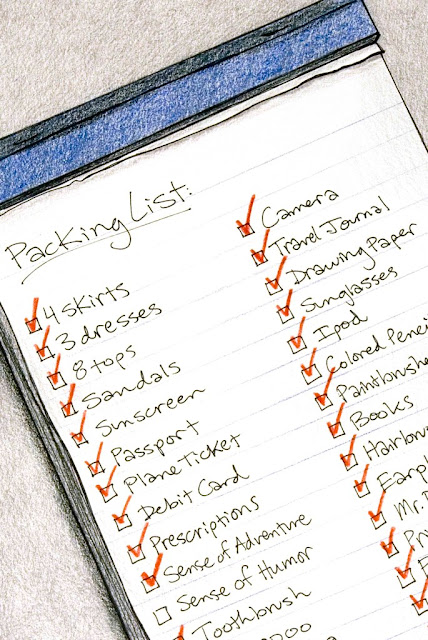 Packing List:
4 skirts
3 dresses
8 tops
Sandals
Sunscreen
Passport
Plane Ticket
Debit Card
Prescriptions
Sense of Adventure
Sense of Humor
Toothbrush
Camera
Travel Journal
Drawing Paper
Sunglasses
Ipod
Colored Penci
Paintbrushe
Books
Hairbrus
Earpl
Mr.